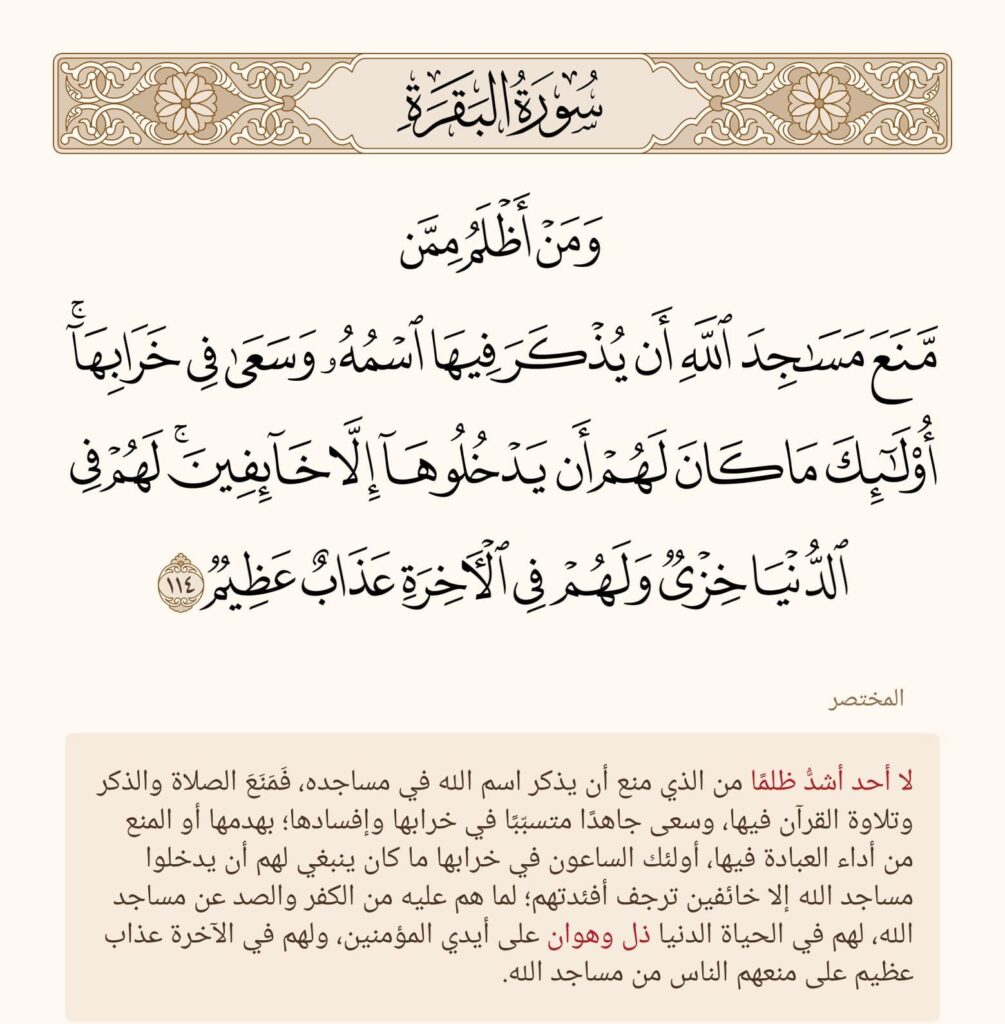 سُورَةُ البَقَرَةِ
وَمَنۡ أَظۡلَمُ مِمَّن
مَّنَعَ مَسَٰجِدَ ٱللَّهِ أَن يُذۡكَرَ فِيهَا ٱسۡمُهُۥ وَسَعَىٰ فِي خَرَابِهَآۚ
أُوْلَٰٓئِكَ مَا كَانَ لَهُمۡ أَن يَدۡخُلُوهَآ إِلَّا خَآئِفِينَۚ لَهُمۡ فِي
ٱلدُّنۡيَا خِزۡيٞ وَلَهُمۡ فِي ٱلۡأٓخِرَةِ عَذَابٌ عَظِيمٞ ١١٤
المختصر
لا أحد أشدُّ ظلمًا من الذي منع أن يذكر اسم الله في مساجده، فَمَنَعَ الصلاة والذكر
وتلاوة القرآن فيها، وسعى جاهدًا متسبّبًا في خرابها وإفسادها؛ بهدمها أو المنع
من أداء العبادة فيها، أولئك الساعون في خرابها ما كان ينبغي لهم أن يدخلوا
مساجد الله إلا خائفين ترجف أفئدتهم؛ لما هم عليه من الكفر والصد عن مساجد
الله، لهم في الحياة الدنيا ذل وهوان على أيدي المؤمنين، ولهم في الآخرة عذاب
عظيم على منعهم الناس من مساجد الله.